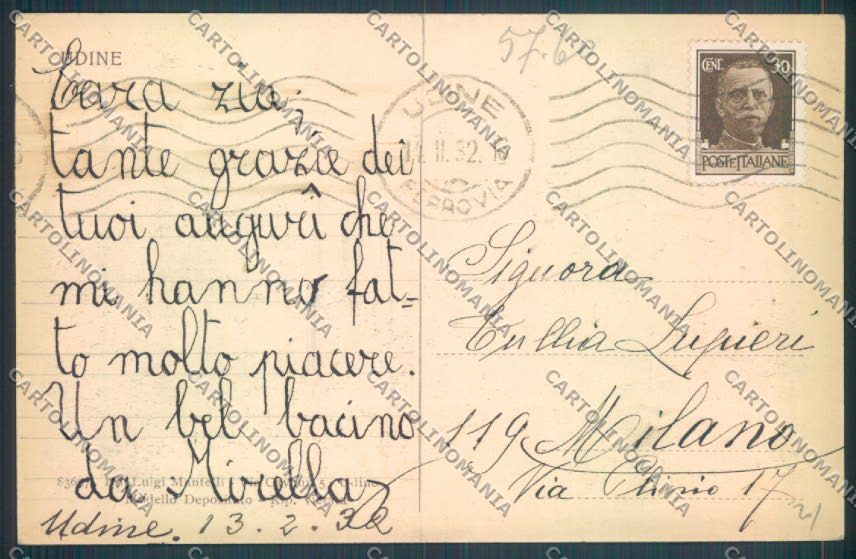 UDINE
57.6
Cara zia,
tante grazie dei
tuoi augurî che
mi hanno fat=
to molto piacere.
Un bel bacino
da Mirella
Udine. 13.2.32
UDINE
12.II.32.
FERROVIA
CENT. 30
POSTE ITALIANE
Signora
Tullia Lupieri
119 Milano
Via Plinio 17
Luigi Mantelli
Modello Depositato
CARTOLINOMANIA